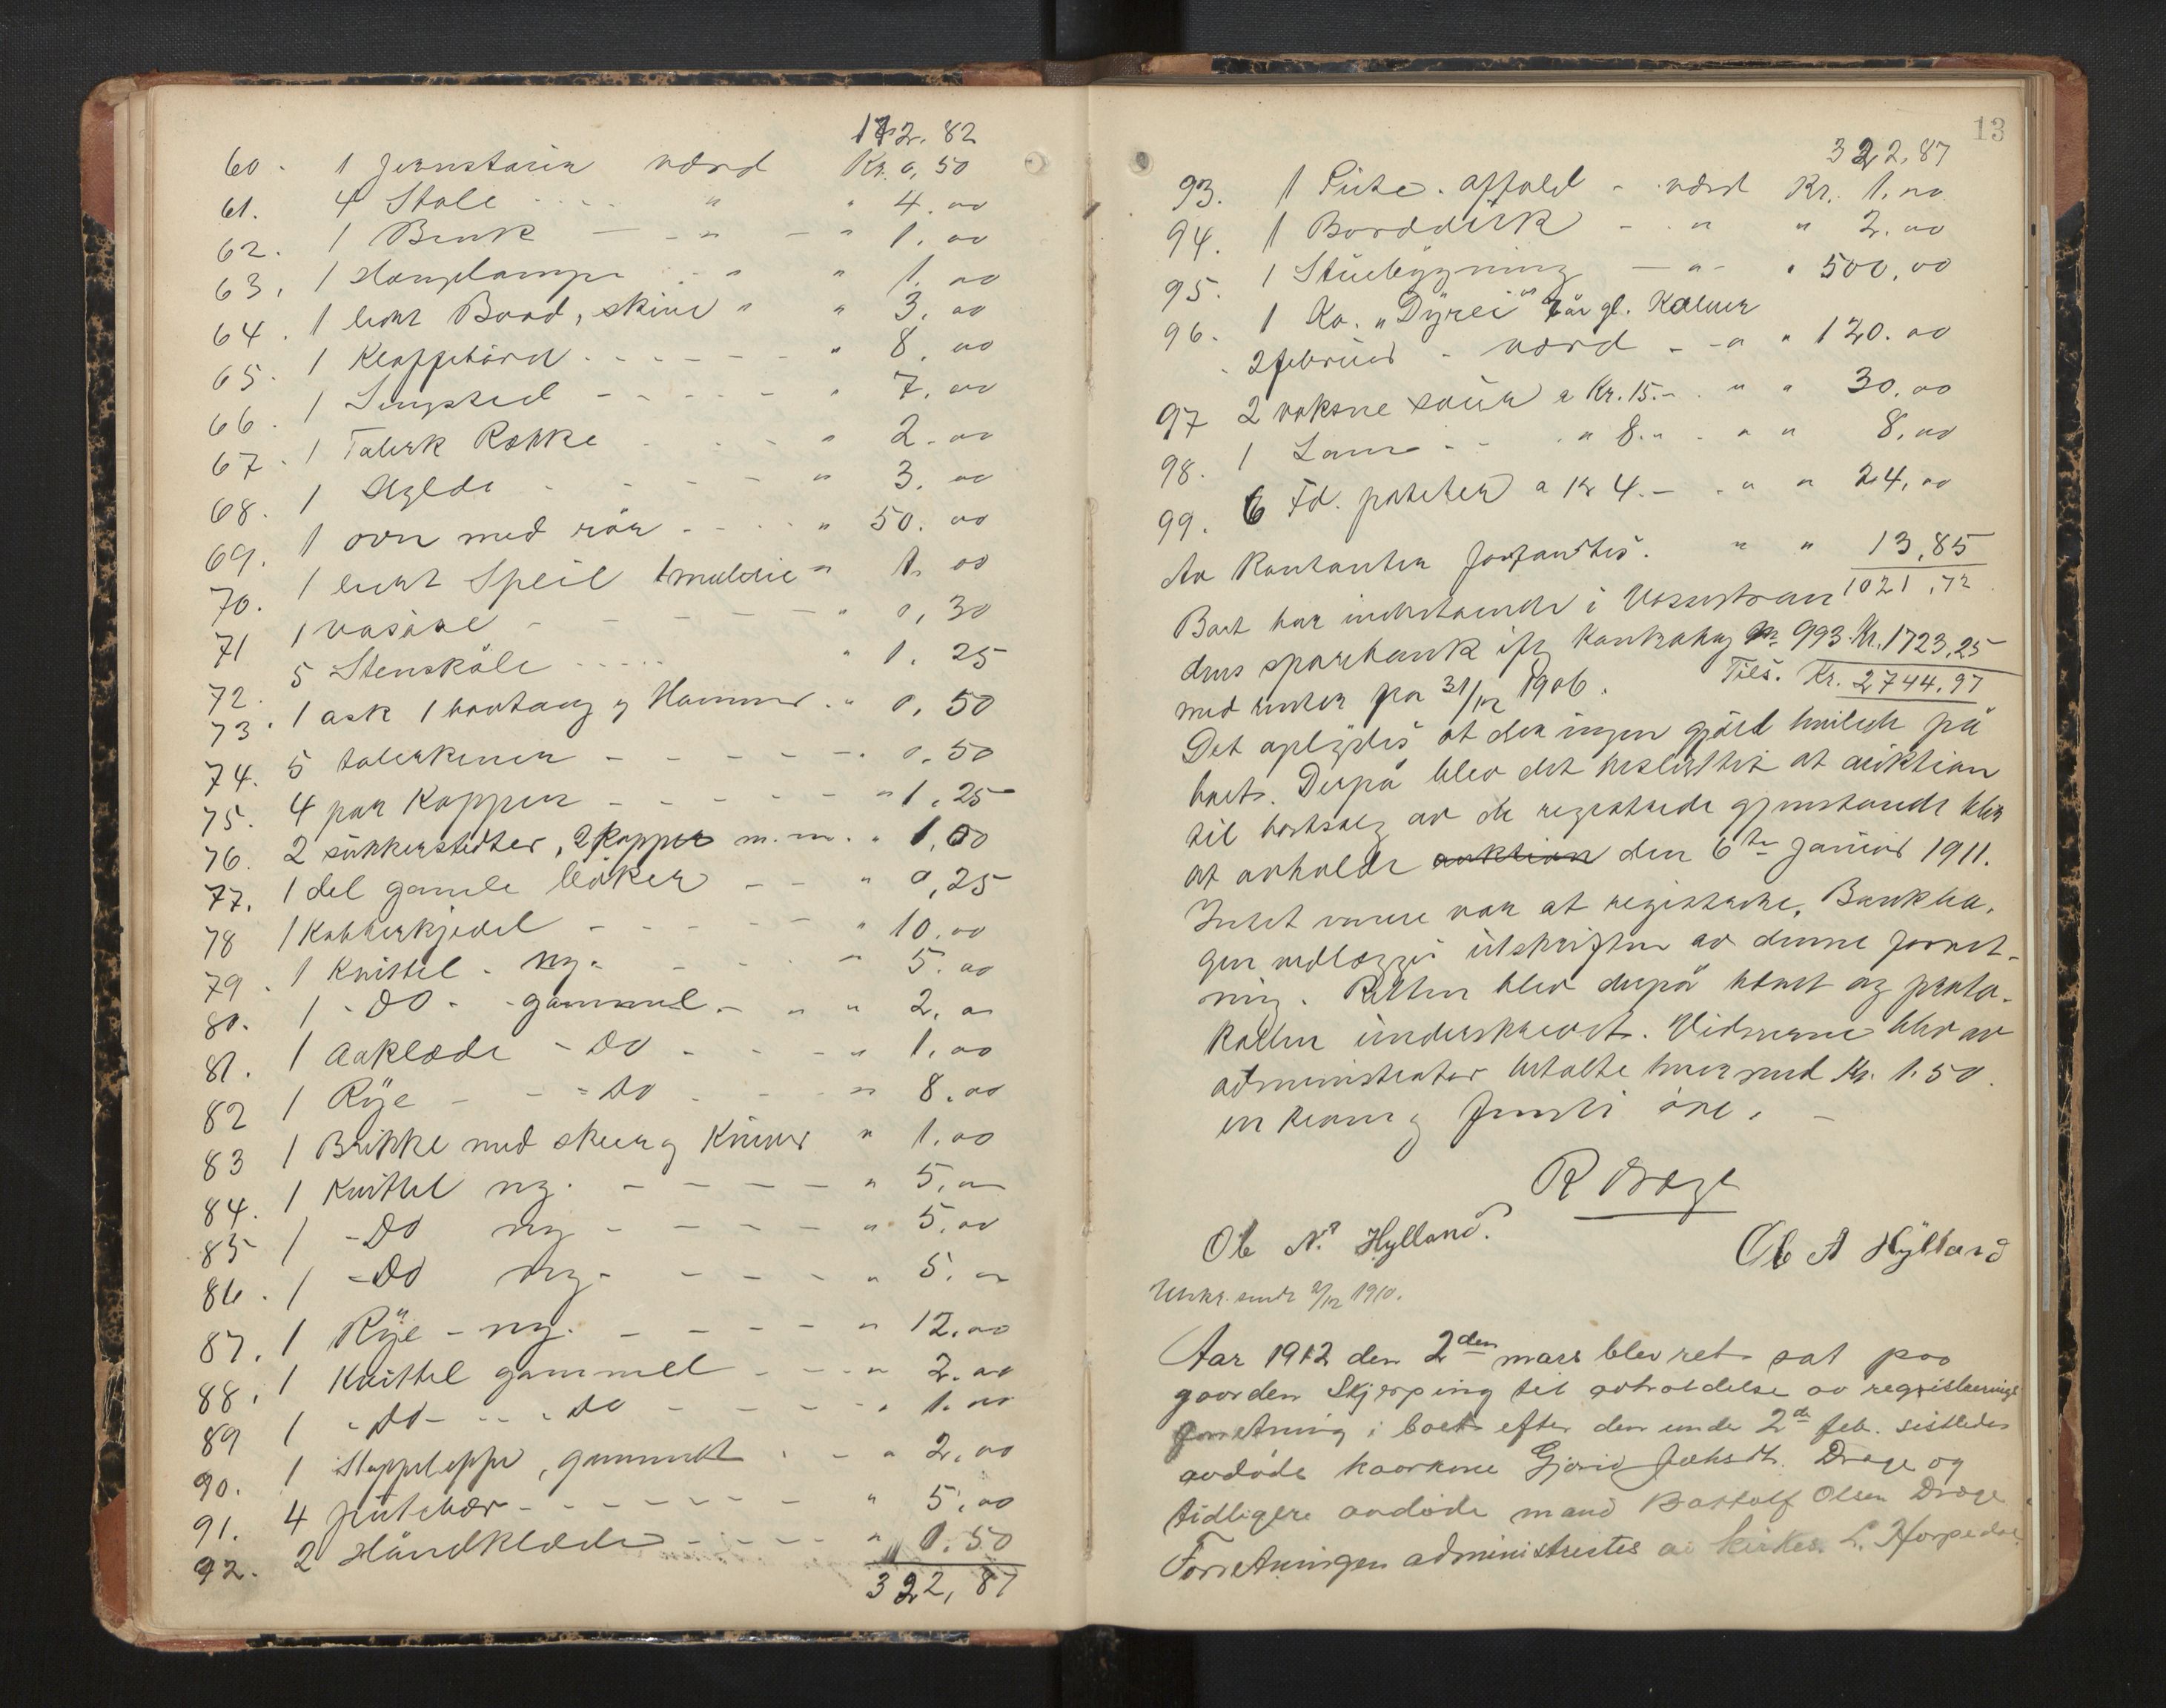 172.82
60. 1 Jernstavn værd Kr. 0,50
61. 4 Stole " " 4.00
62. 1 Benk " " 1.00
63. 1 Hengelampe " " 1.00
64. 1 litet Bord, skive " " 3.00
65. 1 Klappebord " 8.00
66. 1 Sengsted " 7.00
67. 1 Talerk Rekke " 2.00
68. 1 Hylde " 3.00
69. 1 ovn med rör " 50.00
70. 1 litet Speil " 1.00
71 1 " 0,30
72. 5 Stenskåle " 1.25
73. 1 ask 1 og Hammer " 0,50
74. 5 talerkener 0.50
75. 4 par Kopper " 1,25
76. 2 sukkerstetter, 2 Kopper m.m. " 1,00
77. 1 del gamle böker " 0,25
78 1 Kobberkjedel " 10.00
79. 1 Knittel - ny. " 5.00
80. 1 - Do - gammel - " " 2.00
81. 1 Aaklæde - Do - " 1.00
82 1 Rye - Do " 8.00
83 1 Brikke med skeer og Kniver " 1.00
84. 1 Knittel ny. " 5.00
85 1 - Do ny " 5.00
86. 1 - Do ny. " 5.00
87. 1 Rye - ny. " 12.00
88. 1 Knittel gammel " 2.00
89 1 - Do - Do " 1.00
90. 1 Stoppeteppe, gammelt " 2.00
91. 4 " 5.00
92. 2 Håndklæder " 0.50
322,87
13
322,87
93. 1 Pute. affald - værd Kr. 1.00
94. 1 Borddisk - " " 2.00
95. 1 Stuebygning - " " 500,00
96. 1 Ko. "Dyrei" 7 år gl. Kalver
2 februar - værd - " " 120.00
97 2 voksne sauer a Kr. 15.- " " 30.00
98. 1 Lam - " 8.- " " 8.00
99. 6 Td. poteter a Kr 4.- " " 24.00
Av Kontanter forfandtes. " " 13,85
1021,72
Boet har indestaaende i Vossestran
dens sparebank ifg Kontrabog No 993 Kr. 1723,25
med renter pr 31/12 1906. Tils. Kr. 2744.97
Det oplystes at der ingen gjæld hvilede på
boet. Derpå blev det besluttet at auktion
til bortsalg av de registrerte gjenstande blir
at avholde auktion den 6te Januar 1911.
Intet mere var at registrere. Bankbo-
gen vedlægges utskriften av denne forret-
ning. Retten blev derpå hævet og proto-
kollen underskrevet. Vidnerne blev av
administrator betalte hver med Kr. 1.50.
en krone og femti öre. -
R Dræge
Ole N. Hylland.
Ole A Hylland
Utskr. sendt 2/12 1910.
Aar 1912 den 2den mars blev ret sat paa
gaarden Skjerping til avholdelse av registrerings
forretning i boet efter den under 2de feb. sistleden
avdöde kaarkone Gjörid Dræge og
tidligere avdöde mand Botolf Olsen Dræge
Forretningen administrertes av L. Horpedal